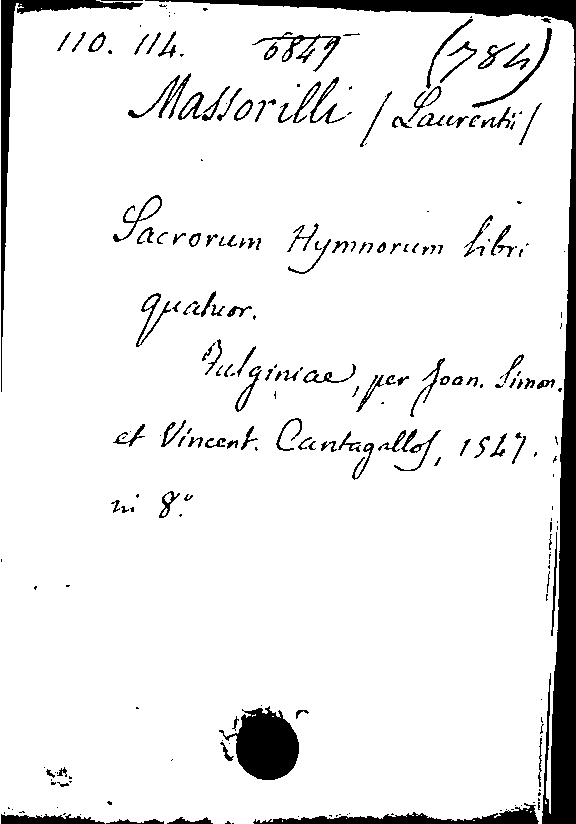 110. 114. 6849 (784)
Massorilli / Laurentii /
Sacrorum Hymnorum libri
quatuor.
Fulginiae, per Joan. Simon.
et Vincent. Cantagallos, 1547.
in 8.º